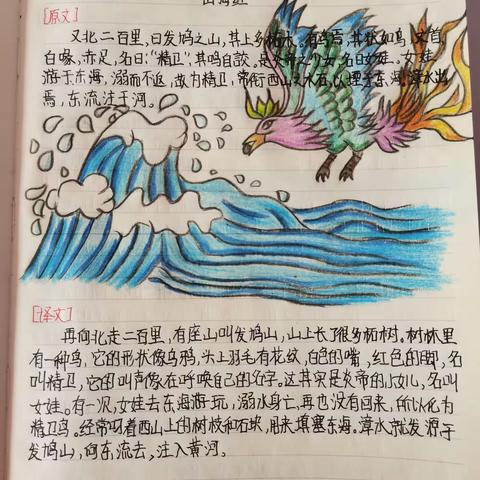 山海经
[原文]
又北二百里,曰发鸠之山,其上多柘木。有鸟焉,其状如乌,文首,
白喙,赤足,名曰:"精卫",其鸣自詨,是炎帝之少女,名曰女娃。女娃
游于东海,溺而不返,故为精卫,常衔西山之木石,以堙于东海。漳水出
焉,东流注于河。
[译文]
再向北走二百里,有座山叫发鸠山,山上长了很多柘树。树林里
有一种鸟,它的形状像乌鸦,头上羽毛有花纹,白色的嘴,红色的脚,名
叫精卫,它的叫声像在呼唤自己的名字。这其实是炎帝的小女儿,名叫
女娃。有一次,女娃去东海游玩,溺水身亡,再也没有回来,所以化为
精卫鸟。经常叼着西山上的树枝和石块,用来填塞东海。漳水就发源于
发鸠山,向东流去,注入黄河。